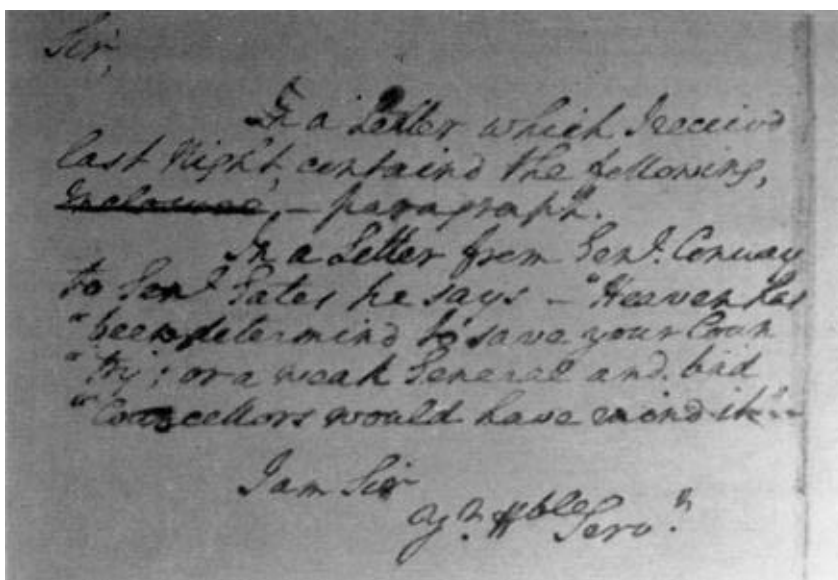 Sir,
In a Letter which I receivd
last Night, containd the following,
Inclosure, – paragraph.
In a Letter from Genl. Conway
to Genl. Gates he says – "Heaven has
"been determind to save your Coun
"try; or a weak General and bad
"Councellors would have ruind it"–
I am Sir
Yr. Hble
Servt.